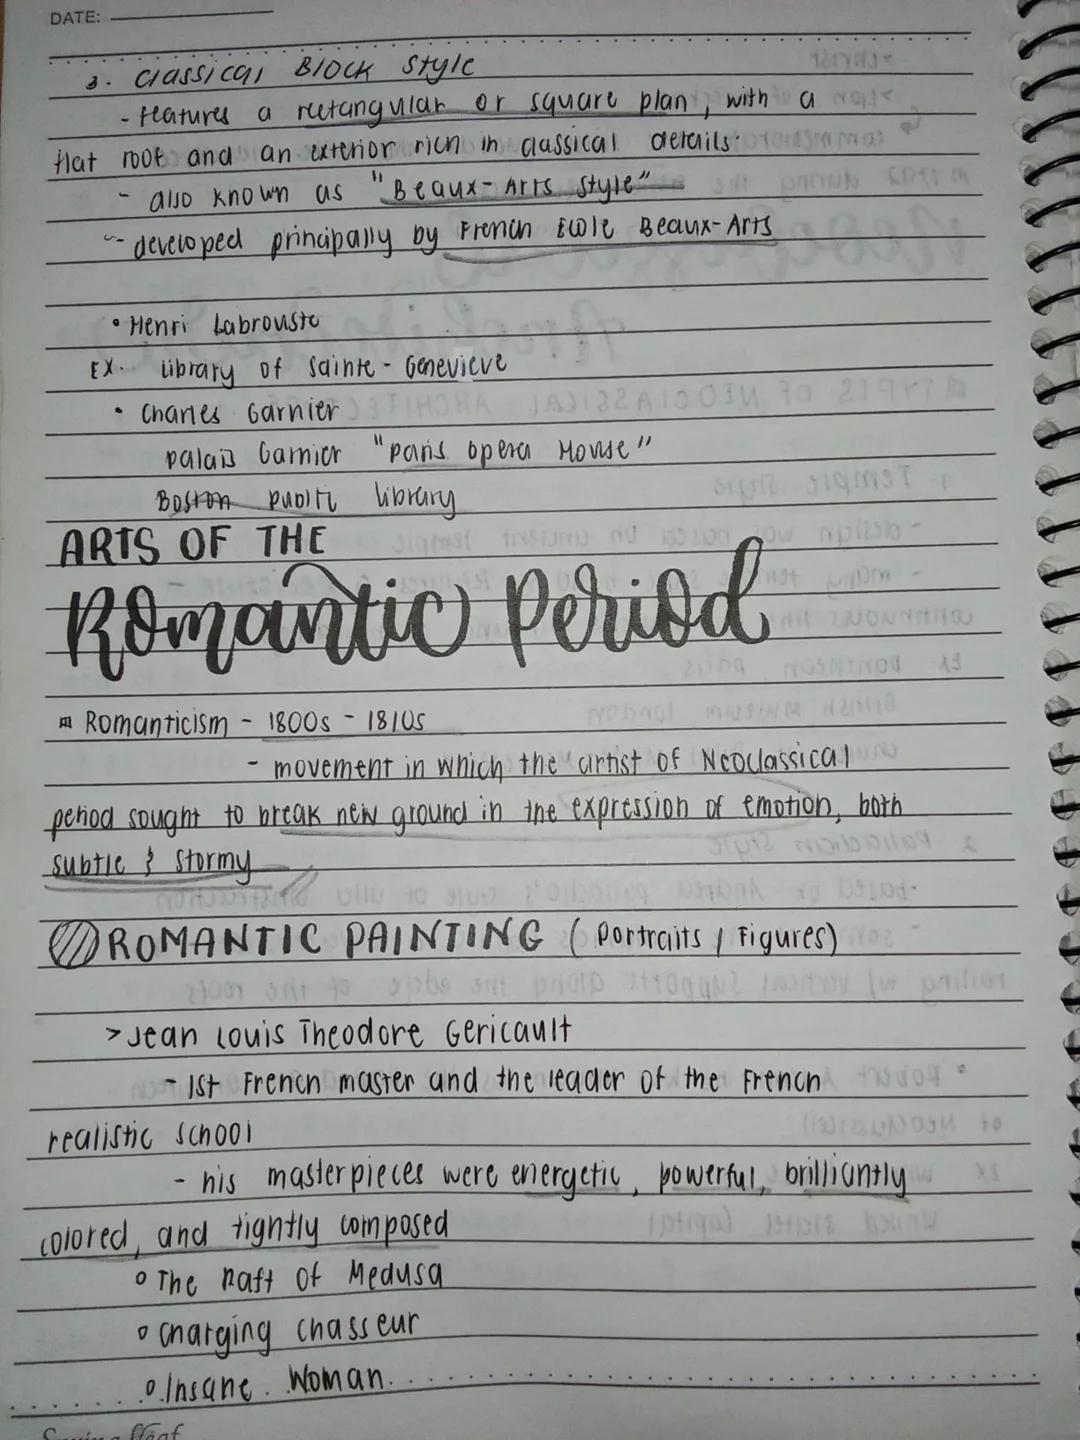 DATE:
3. Classical Block Style
- features a rectangular or square plan, with a
flat roof and an exterior rich in classical details.
- also known as "Beaux-Arts Style"
- developed principally by French Ecole Beaux-Arts
• Henri Labrouste
EX. Library of Sainte-Genevieve
• Charles Garnier
Palais Garnier "Paris Opera House"
Boston Public Library
ARTS OF THE
Romantic Period
Romanticism - 1800s - 1810s
- movement in which the artist of Neoclassical
period sought to break new ground in the expression of emotion, both
subtle & stormy
ROMANTIC PAINTING (Portraits / Figures)
> Jean Louis Theodore Gericault
- 1st French master and the leader of the French
realistic school
- his masterpieces were energetic, powerful, brilliantly
colored, and tightly composed
o The Raft of Medusa
o Charging Chasseur
o Insane Woman